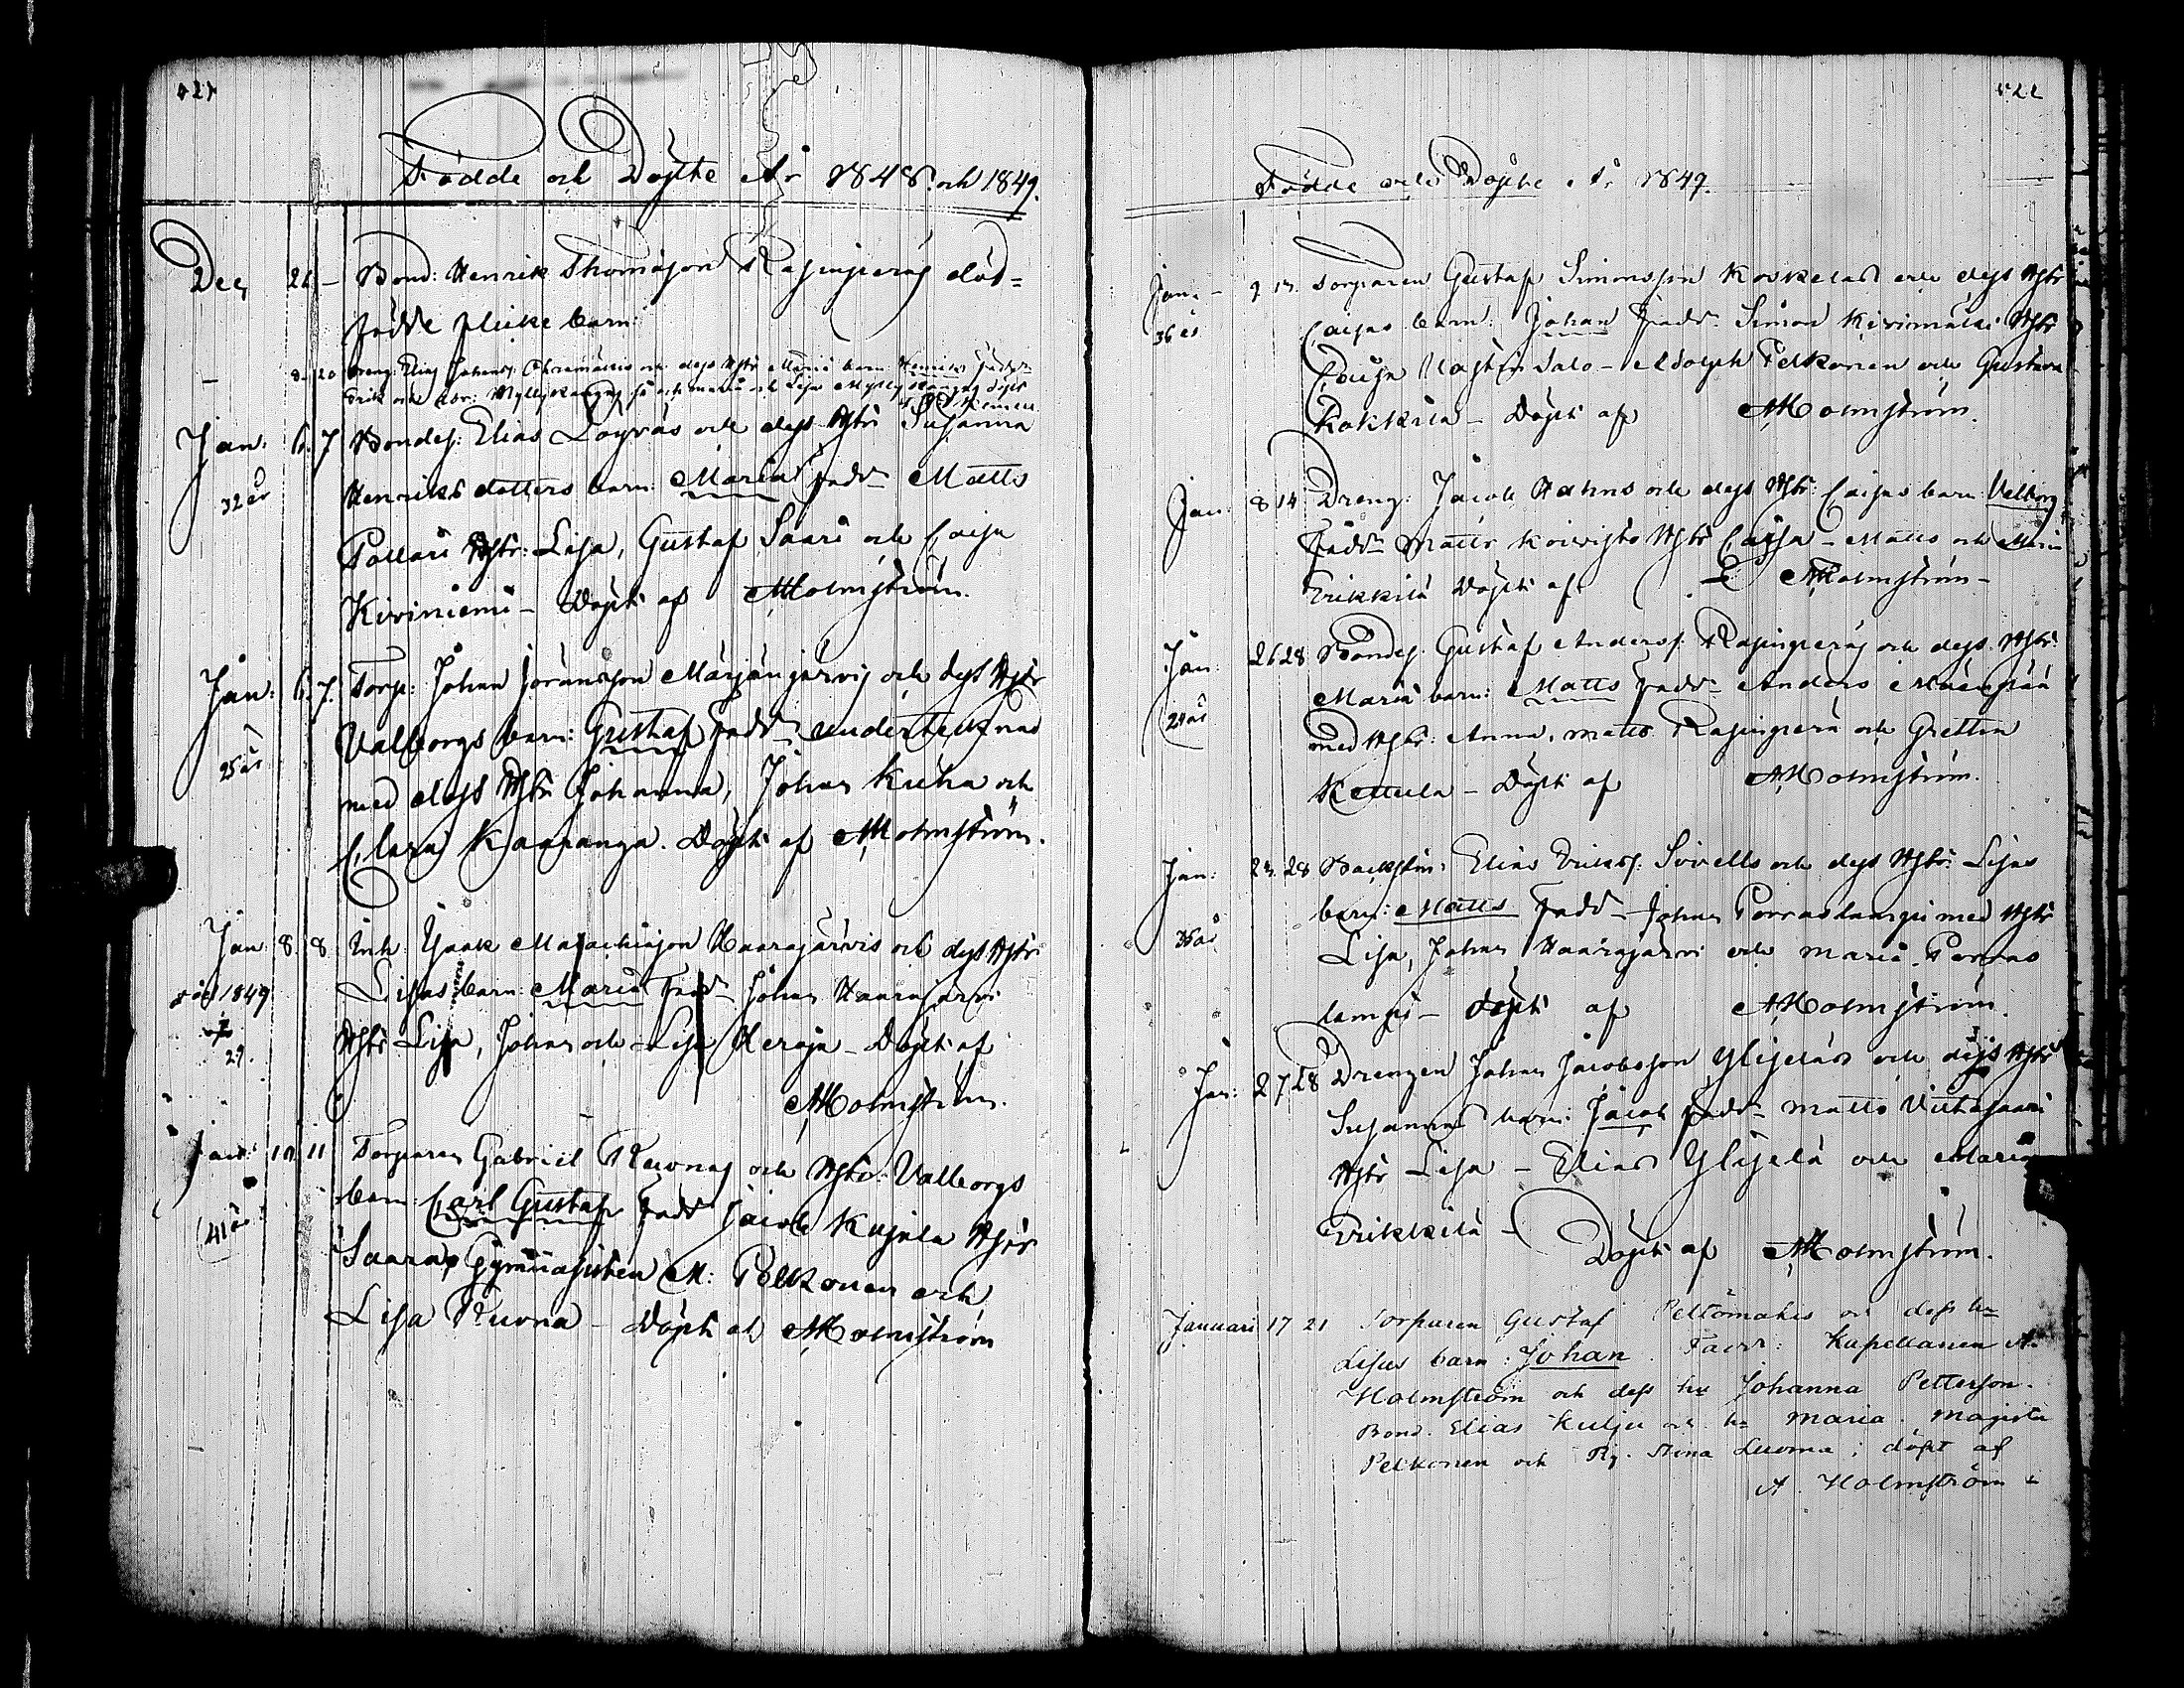 421
Födde och Döpte År 1848. och 1849.
Dec 21 — Bond: Henrik Thomasson Rajinperäs död=
födde flicke barn:
— 8 20 Dreng Elias Johans: och dess Hstr Maria barn Henrik fadd
Erik och Myllykangas och Maria och Lisa Myllykangas döpt
Jan: 6. 7 Bondes: Elias Löyväs och dess Hstr Susanna
32 år Henriks dotters barn: Maria fadd Matts
Pollari Hstr: Lisa, Gustaf Saari och Caisa
Kiviniemi — Döpt af A Holmström.
Jan: 6. 7. Torp: Johan Jöransson Märjänjärvis och dess Hstr
25 år Valborgs barn: Gustaf Fadd undertecknad
med dess Hstr Johanna, Johan Kuha och
Clara Kaaranga. Döpt af A Holmström.
Jan 8. 8 Inh: Isaak Malachiasson Haarajärvis och dess Hstr
död 1849 Lisas barn: Maria Fadd Johan Haarajärvi
29. Hstr Lisa, Johan och Lisa Heroja — Döpt af
A Holmström.
Jan: 10 11 Torparen Gabriel Ruonas och Hstr: Valborgs
41 år barn: Carl Gustaf Fadd Jacob Kujala Hstr
Saara, Gymnasisten M: Pelkonen och
Lisa Ruona — Döpt af A Holmström
422
Födde och Döpte År 1849.
Jan. — 9 13. Torparen Gustaf Simonsson Koskelas och dess Hstr
36 år Caisas barn: Johan Fadd: Simon Kivimäki Hstr
Caisa Salo — Adolph Pelkonen och Gustava
Kokkila — Döpt af A Holmström.
Jan: 8 14 Dreng: Jacob Hahns och dess Hstr: Caisas barn: Valborg
Fadd Matts Koivisto Hstr Caisa — Matts och Maria
Erikkilä Döpt af A Holmström —
Jan: 26 28 Bondes. Gustaf Anders: Rajinperäs och dess Hstr:
29 år Maria barn: Matts Fadd Anders Mäenpää
med Hstr: Anna, Matts Rajinperä och Gretta
Kettula — Döpt af A Holmström.
Jan: 23. 28 Backstu: Elias Eriks: Sivells och dess Hstr: Lisas
35 år barn: Matts Fadd — Johan Porraslampi med Hstr
Lisa, Johan Haarajärvi och Maria Porras
lampi — döpt af A Holmström.
Jan: 27 28 Drengen Johan Jacobsson Ylijeläs och dess Hstr
Susannas barn: Jacob fadd — Matts Viitasaari
Hstr Lisa — Elias Ylijelä och Maria
Erikkilä — Döpt af A Holmström.
Januari 17 21 Torparen Gustaf Peltomäkis och dess hu
Lisas barn: Johan. Fadd: Kapellanen A.
Holmström och dess hu Johanna Petterson.
Bond. Elias Kulju och hu Maria. Magister
Pelkonen och Pig. Stina Luoma; döpt af
A. Holmström